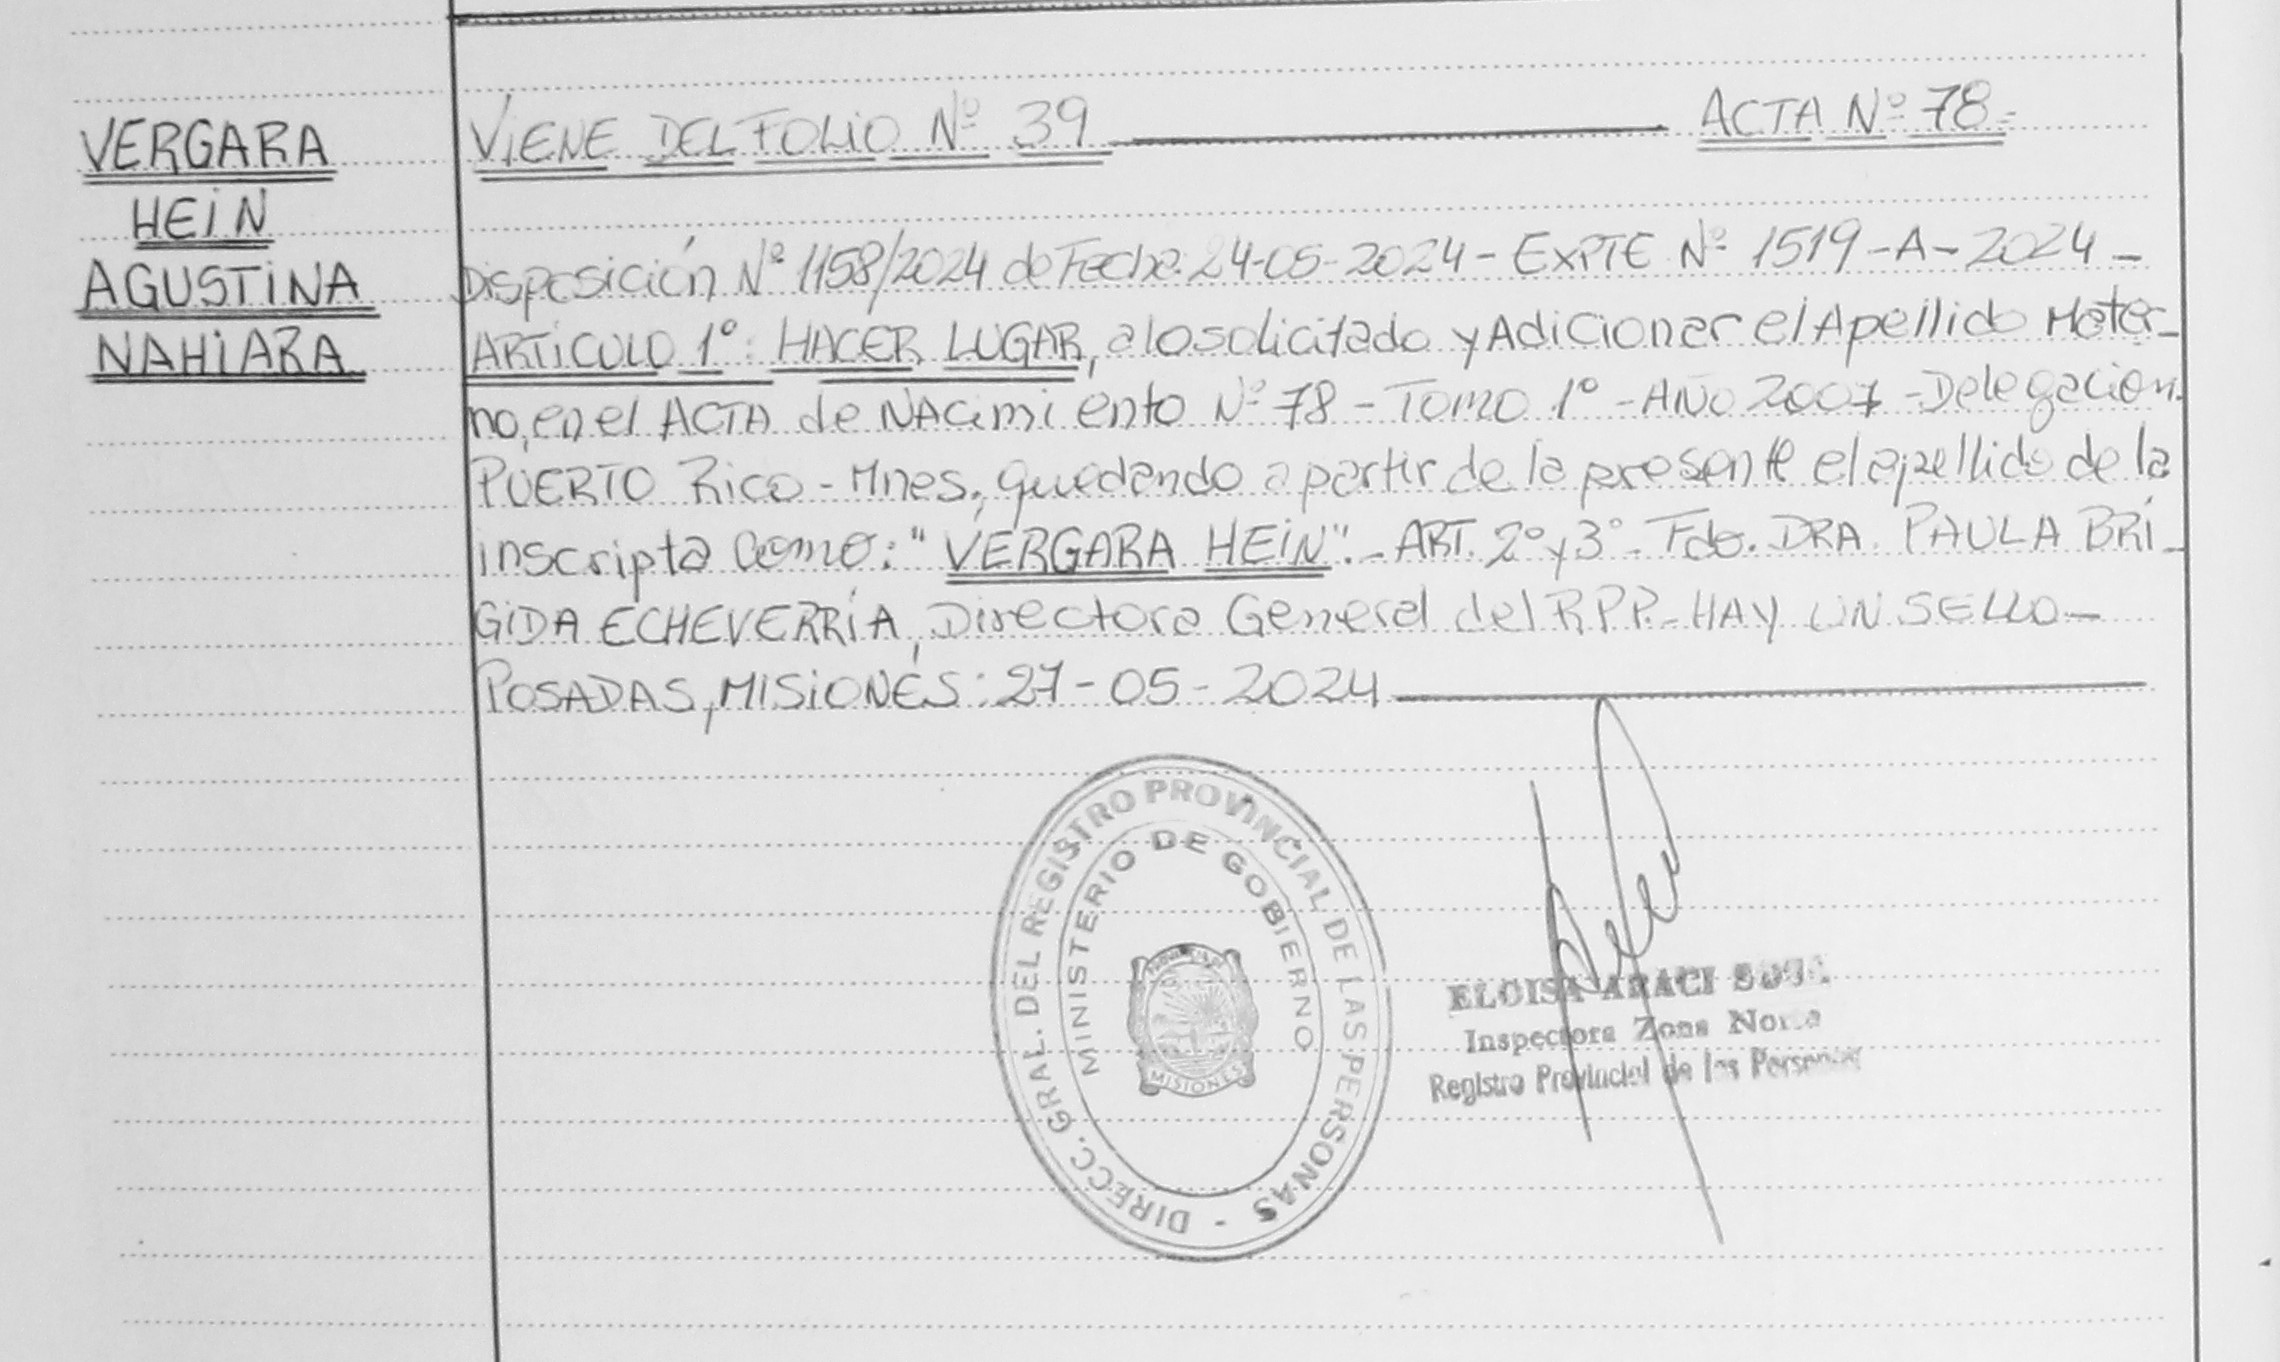 VERGARA
HEIN
AGUSTINA
NAHIARA
VIENE DEL FOLIO Nº 39 ACTA Nº 78-
Disposición Nº 1158/2024 de Fecha 24-05-2024 - EXPTE Nº 1519-A-2024 -
ARTÍCULO 1º: HACER LUGAR, a lo solicitado y Adicionar el Apellido Mater-
no, en el ACTA de NAcimiento Nº 78 - TOMO 1º - AÑO 2007 - Delegación
PUERTO Rico - Mnes., quedando a partir de la presente el apellido de la
inscripta como: "VERGARA HEIN". - ART. 2º y 3º - Fdo. DRA. PAULA BRI-
GIDA ECHEVERRÍA, Directora General del R.P.P. - HAY UN SELLO -
POSADAS, MISIONES: 27-05-2024
DIRECC. GRAL. DEL REGISTRO PROVINCIAL DE LAS PERSONAS -
MINISTERIO DE GOBIERNO
MISIONES
ELOISA ARACI
Inspectora Zona Norte
Registro Provincial de las Personas